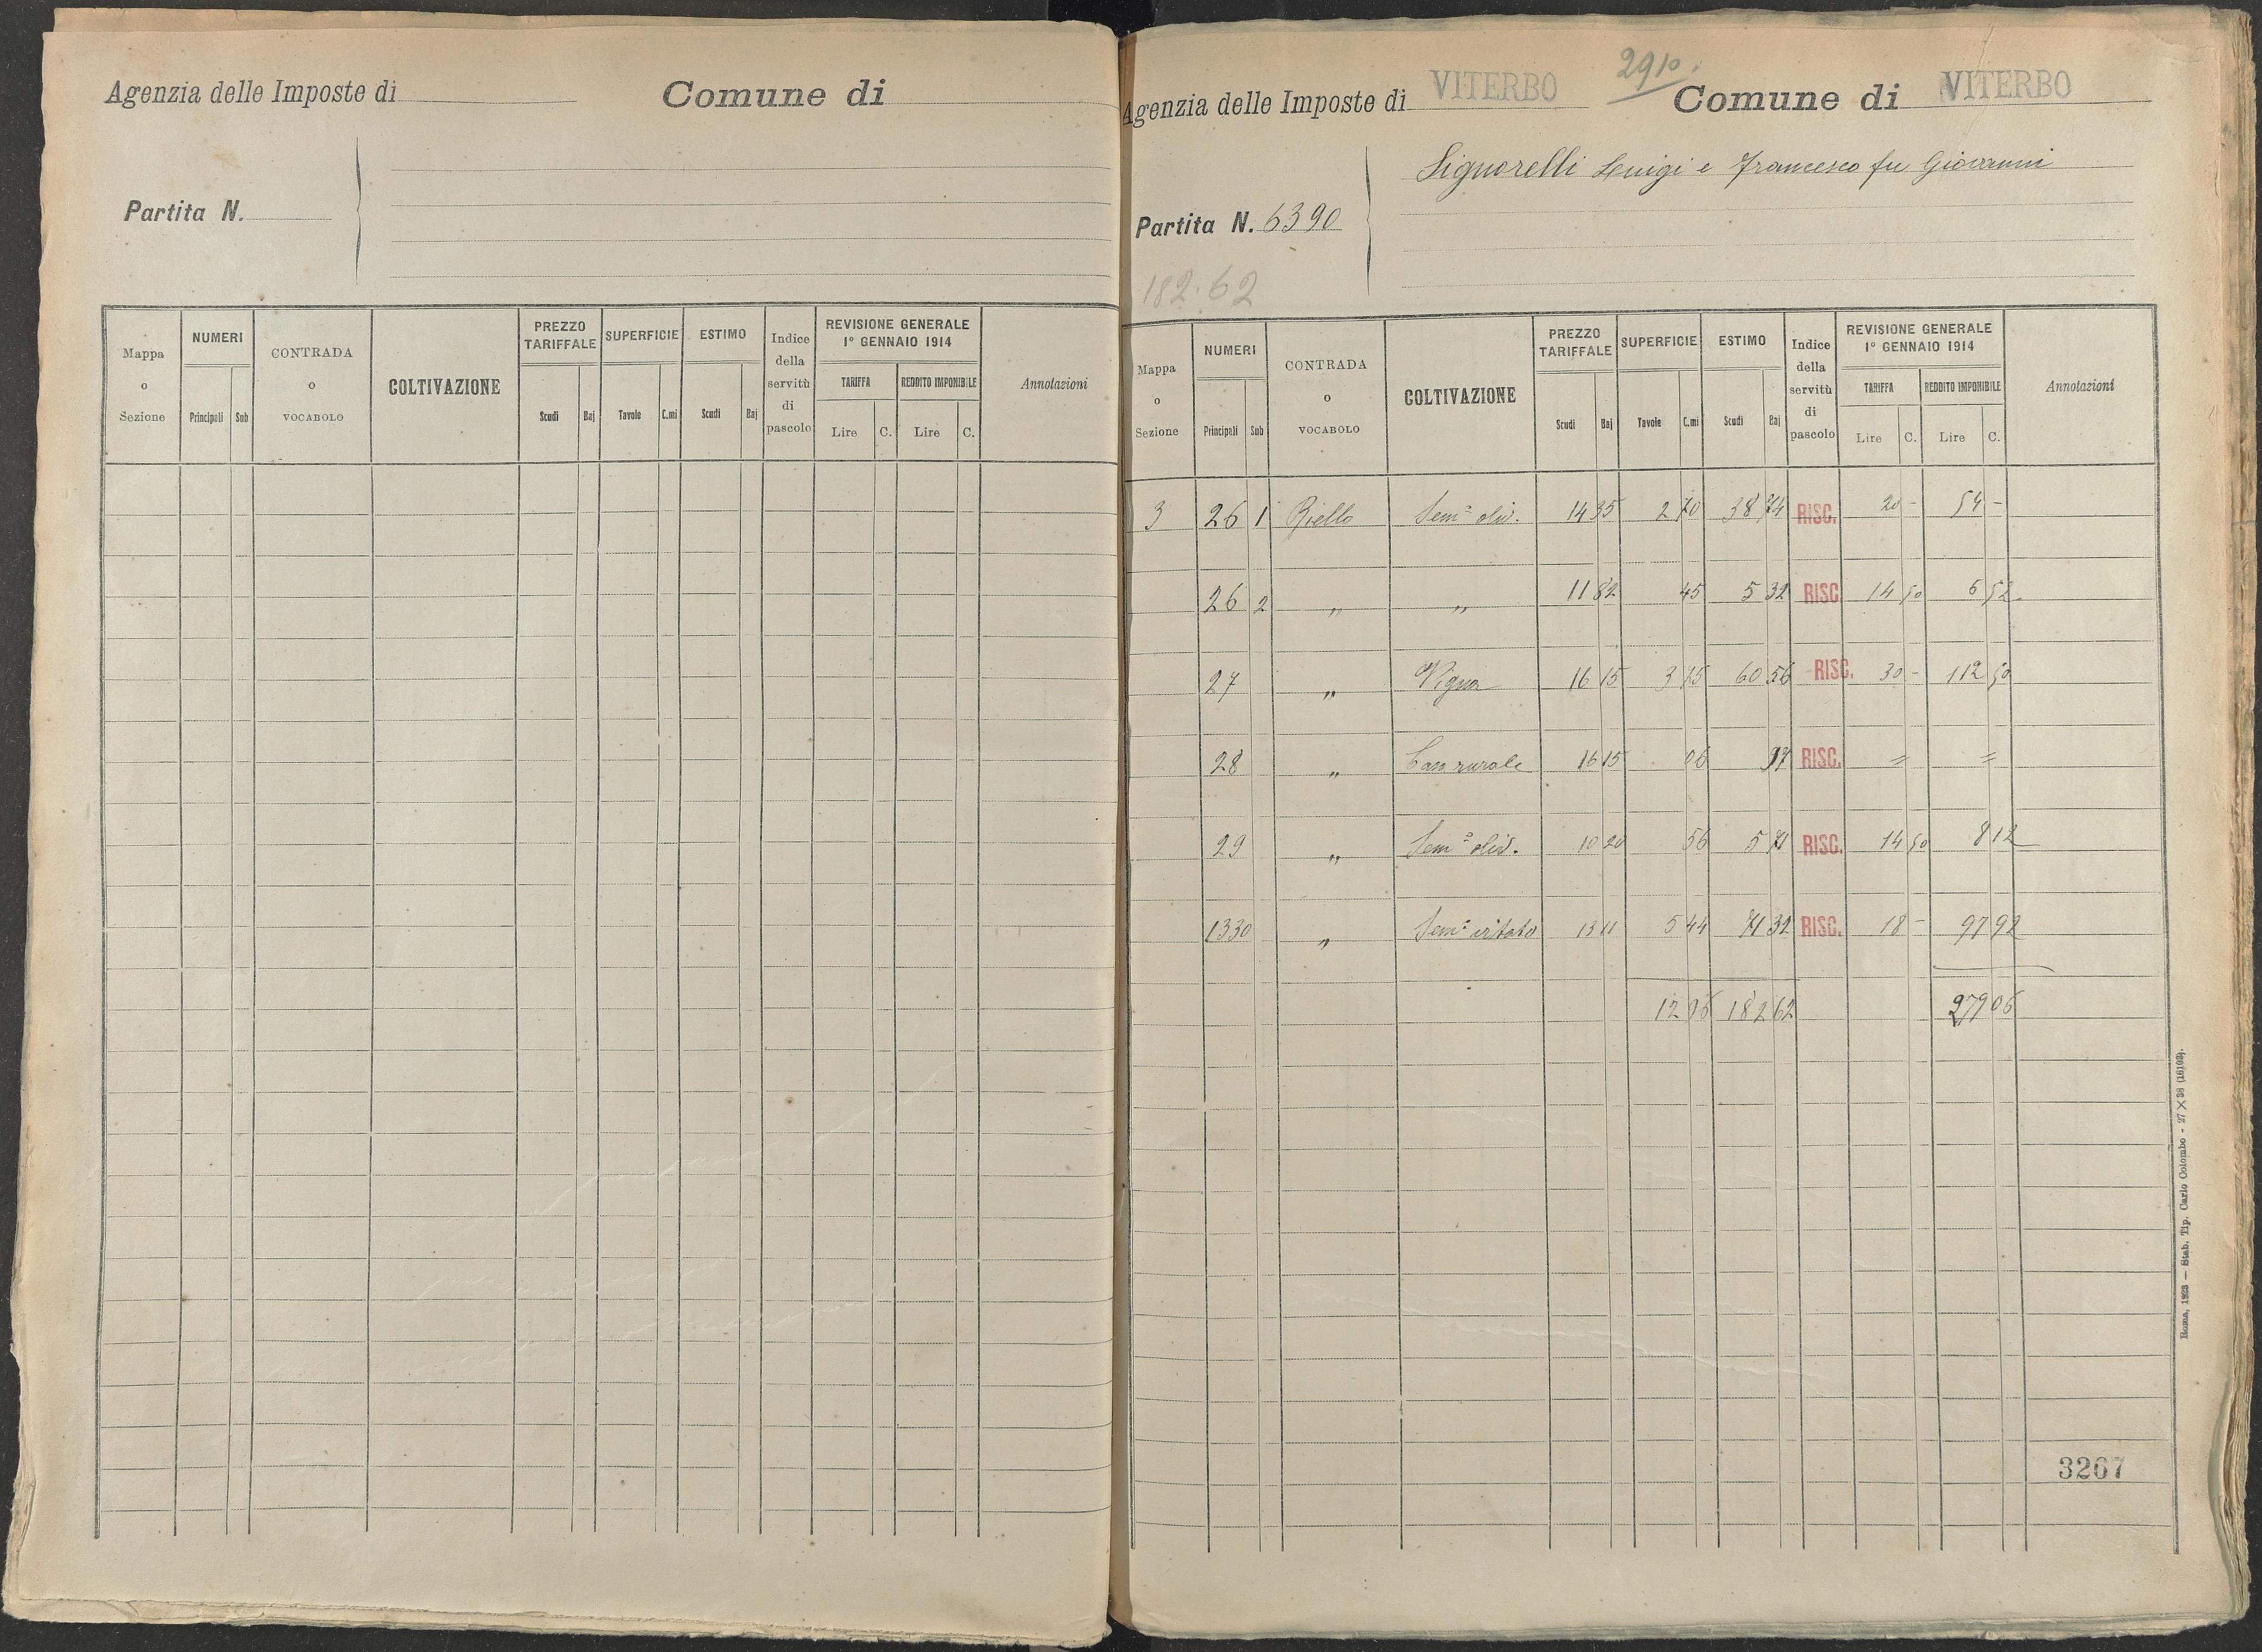 Agenzia delle Imposte di Comune di
Partita N.
Mappa o Sezione NUMERI CONTRADA o VOCABOLO COLTIVAZIONE PREZZO TARIFFALE SUPERFICIE ESTIMO Indice della servitù di pascolo REVISIONE GENERALE 1° GENNAIO 1914 Annotazioni
TARIFFA REDDITO IMPONIBILE
Principali Sub Scudi Baj Tavole C.mi Scudi Baj Lire C. Lire C.
2910.
Agenzia delle Imposte di VITERBO Comune di VITERBO
Signorelli Luigi e Francesco fu Giovanni
Partita N. 6390
182.62
Mappa o Sezione NUMERI CONTRADA o VOCABOLO COLTIVAZIONE PREZZO TARIFFALE SUPERFICIE ESTIMO Indice della servitù di pascolo REVISIONE GENERALE 1° GENNAIO 1914 Annotazioni
TARIFFA REDDITO IMPONIBILE
Principali Sub Scudi Baj Tavole C.mi Scudi Baj Lire C. Lire C.
3 26 1 Riello Sem° oliv. 14 35 2 70 38 74 RISC. 20 - 54 -
26 2 " " 11 82 45 5 32 RISC. 14 50 6 52
27 " Vigna 16 15 3 75 60 56 RISC. 30 - 112 50
28 " Casa rurale 16 15 06 97 RISC. = =
29 " Sem° oliv. 10 20 56 5 71 RISC. 14 50 8 12
1330 " Sem° vitato 13 11 5 44 71 32 RISC. 18 - 97 92
12 96 182 62 279 06
3267
Roma, 1923 — Stab. Tip. Carlo Colombo - 27 X 38 (16102).